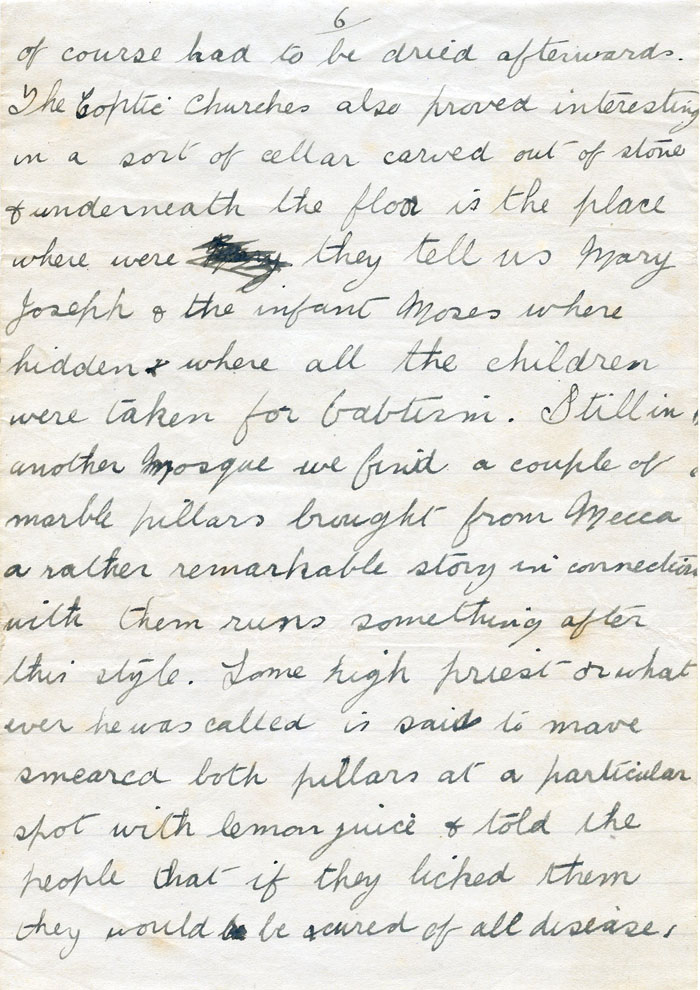 6
of course had to be dried afterwards.
The Coptic Churches also proved interesting
in a sort of cellar carved out of stone
& underneath the floor is the place
where were they tell us Mary
Joseph & the infant Moses where
hidden & where all the children
were taken for babtism. Still in
another Mosque we find a couple of
marble pillars brought from Mecca
a rather remarkable story in connection
with them runs something after
this style. Some high priest or what
ever he was called is said to mave
smeared both pillars at a particular
spot with lemon juice & told the
people that if they licked them
they would be cured of all disease,